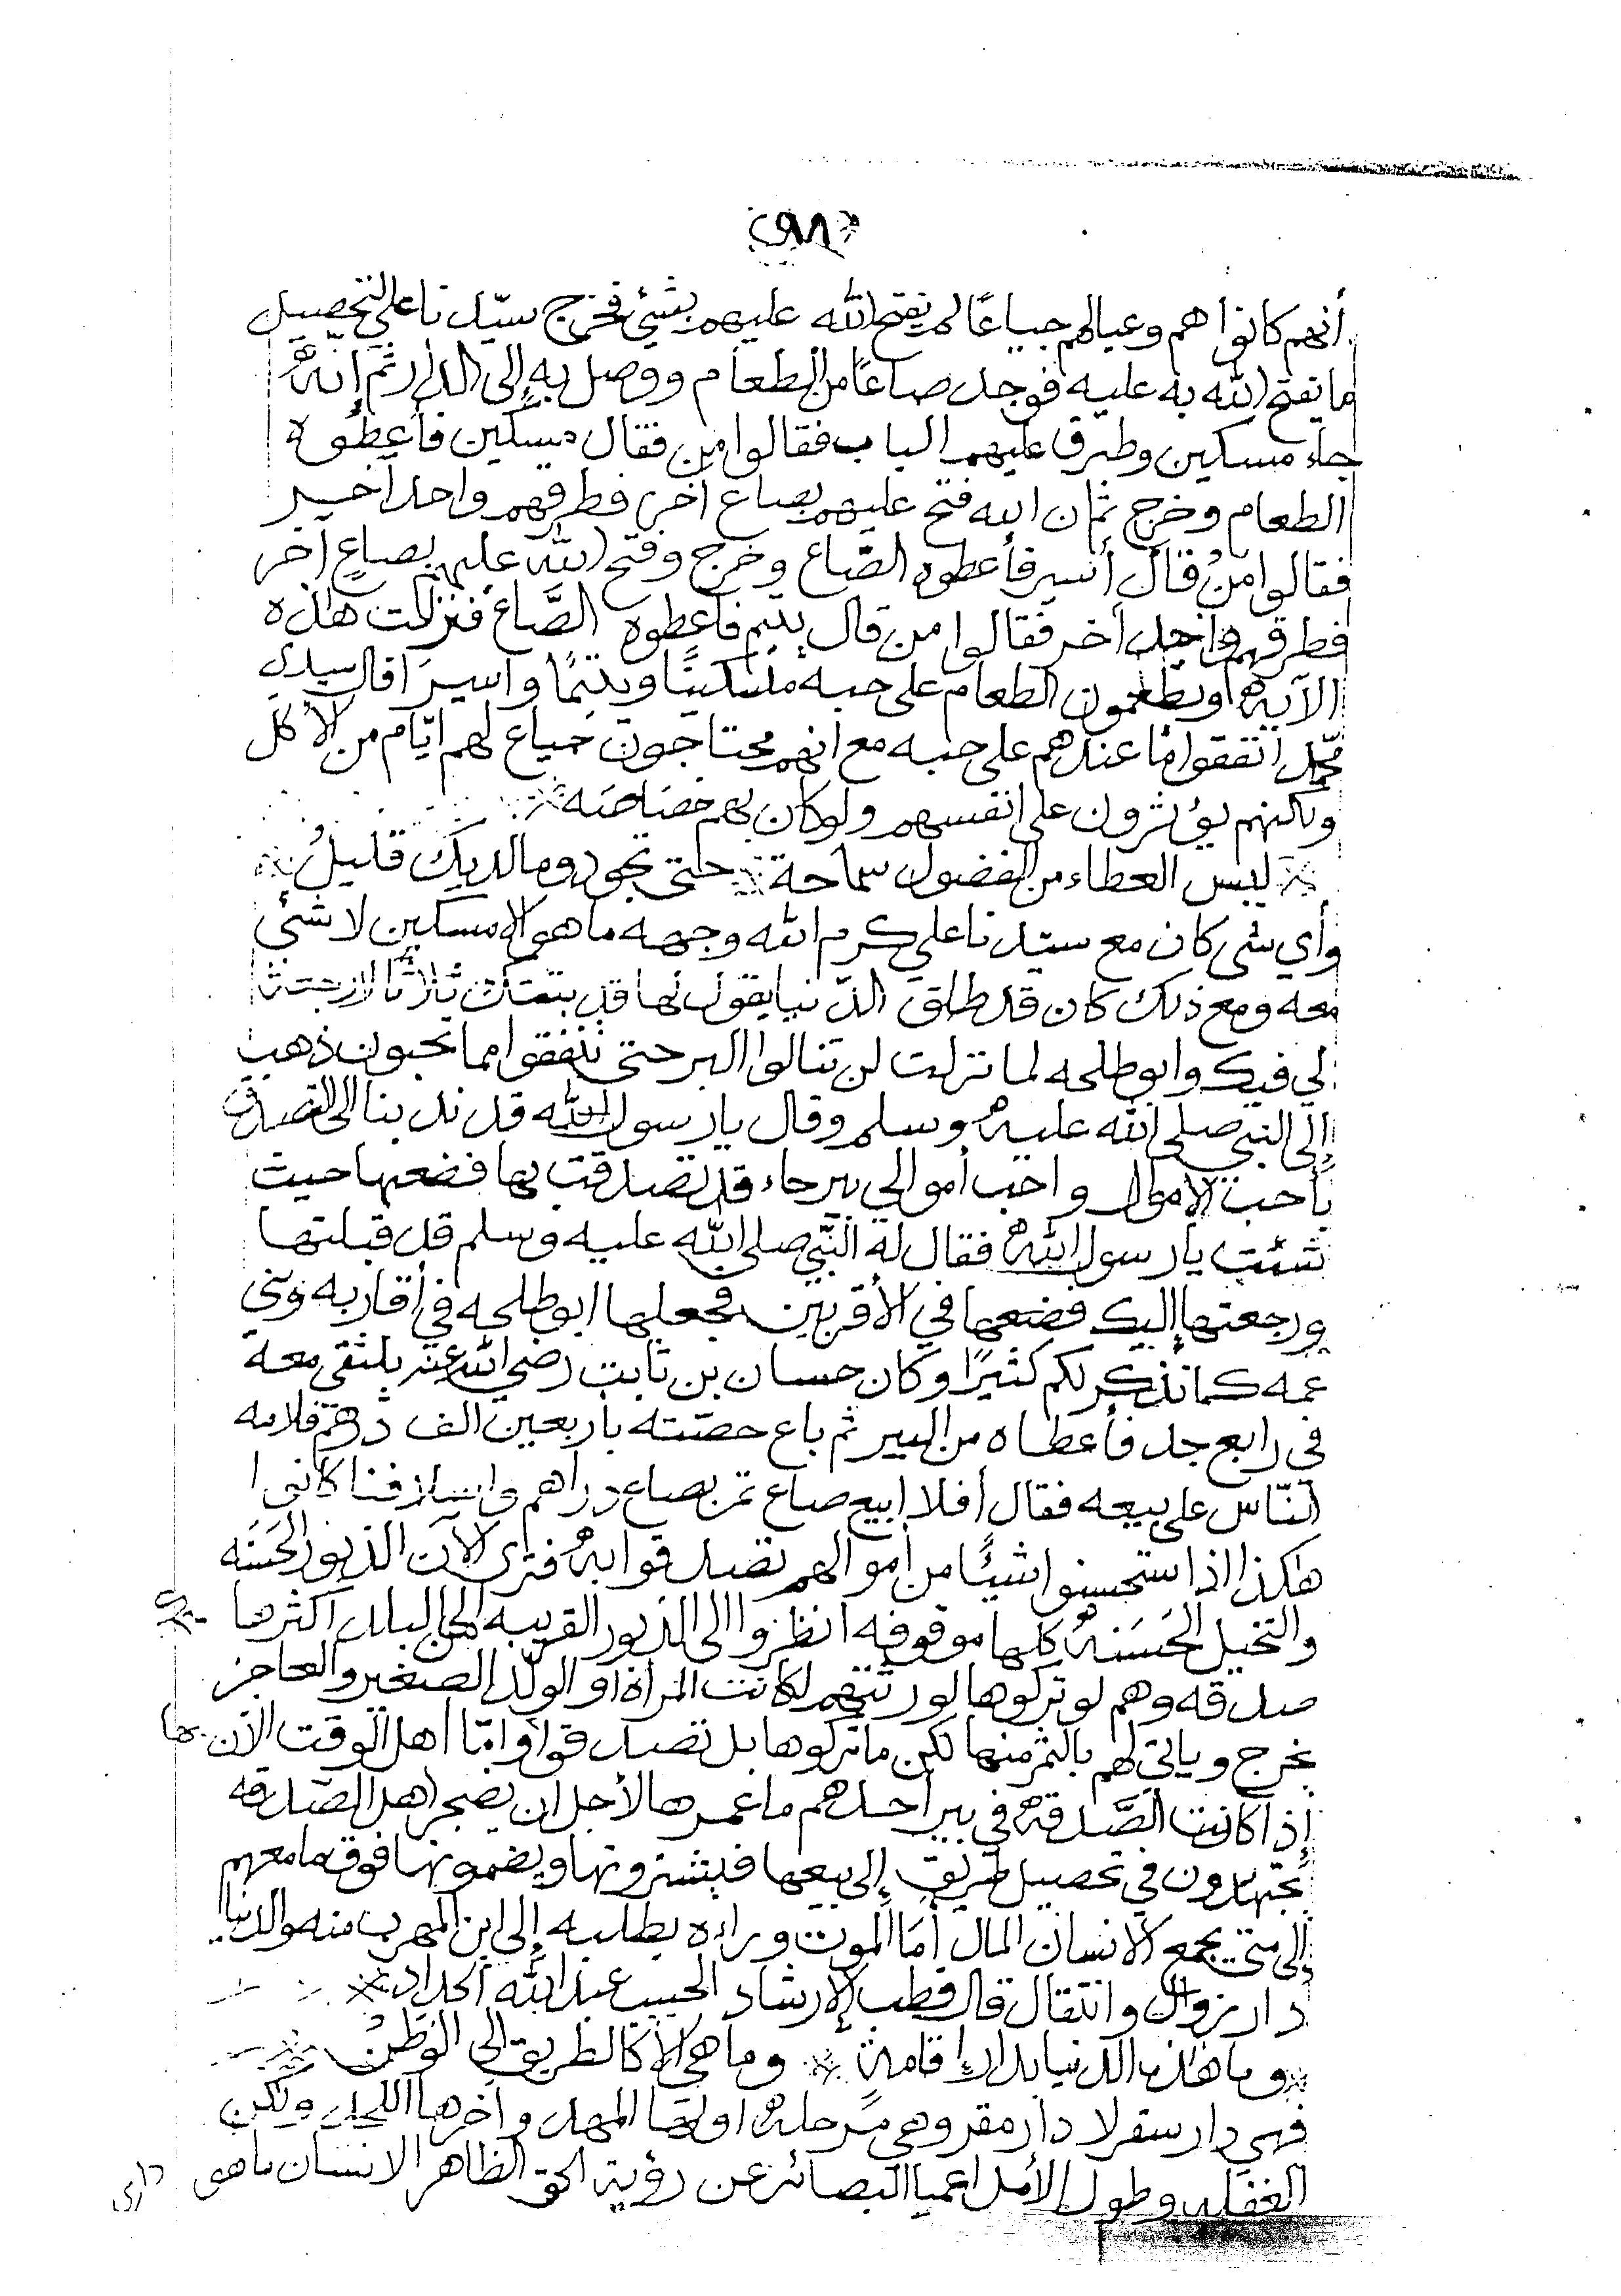 (٩٨)
أنهم كانوا هم وعيالهم جياعًا لم يفتح الله عليهم بشئ فخرج سيّدنا علي لتحصيل
ما يفتح الله به عليه فوجد صاعًا من الطعام ووصل به إلى الدار ثم إنّهُ
جاء مسكين وطرق عليهم الباب فقالوا من فقال مسكين فأعطوه
الطعام وخرج ثم ان الله فتح عليهم بصاع آخر فطرقهم واحد آخر
فقالوا من قال أسير فأعطوه الصّاع وخرج وفتح الله عليهم بصاعٍ آخر
فطرقهم واحد آخر فقالوا من قال يتيم فأعطوه الصَّاع فنزلت هذه
الآية ويطعمون الطعام على حبه مسكينًا ويتيمًا واسيرا قال سيدي
محمد انفقوا ما عندهم على حبه مع انهم محتاجون جياع لهم ايّام من الأكل
ولكنهم يؤثرون على انفسهم ولو كان بهم خصاصه
ليس العطاء من الفضول سماحة حتى تجود وما لديك قليلُ
وأي شي كان مع سيّدنا علي كرم الله وجهه ما هو إلا مسكين لا شئ
معه ومع ذلك كان قد طلق الدّنيا يقول لها قد بتتك ثلاثًا لا رجعة
لي فيك وابو طلحه لما نزلت لن تنالوا البر حتى تنفقوا مما تحبون ذهب
إلى النبي صلى الله عليه وسلم وقال يا رسول الله قد ندبنا الى التصدق
بأحب الأموال واحب أموالي بيرحاء قد تصدقت بها فضعها حيث
شئت يا رسول الله فقال له النّبي صلى الله عليه وسلم قد قبلتها
ورجعتها إليك فضعها في الأقربين فجعلها ابو طلحه في أقاربه وبني
عمه كما نذكر لكم كثيرًا وكان حسان بن ثابت رضي الله عنه يلتقي معه
في رابع جد فأعطاه من البير ثم باع حصّته بأربعين الف درهم فلامه
النّاس على بيعه فقال أفلا ابيع صاع تمر بصاع دراهم واسلافنا كانوا
هكذا اذا ستحسنوا شيئًا من أموالهم تصدقوا به فترى الآن الذبور الحسنه
والنخيل الحَسَنه كلها موقوفه انظروا الى الذبور القريبه إلى البلد اكثرها
صدقه وهم لو تركوها لورثتهم لكانت المرأة أو الولد الصغير والعاجز
يخرج ويأتي لهم بالثمر منها لكن ما تركوها بل تصدقوا وامّا أهل الوقت الآن بها
إذا كانت الصَّدقة في بير أحدهم ما عمرها لأجل ان يضجر اهل الصّدقه
يجتهدون في تحصيل طريق إلى بيعها فيشترونها ويضمونها فوق ما معهم
إلى متى يجمع الانسان المال أمَا الموت وراءه يطلبه إلى اين المهرب منه والدنيا
دار زوال وانتقال قال قطب الإرشاد الحبيب عبد الله الحداد
وما هذه الدنيا بدار إقامة وما هي إلا كالطريق إلى الوطنْ
فهي دار سفر لا دار مقر وهي مرحلة اولها المهد وآخرها اللحد ولكن
الغفله وطول الأمل اعميا البصائر عن رؤية الحق الظاهر الانسان ما هو